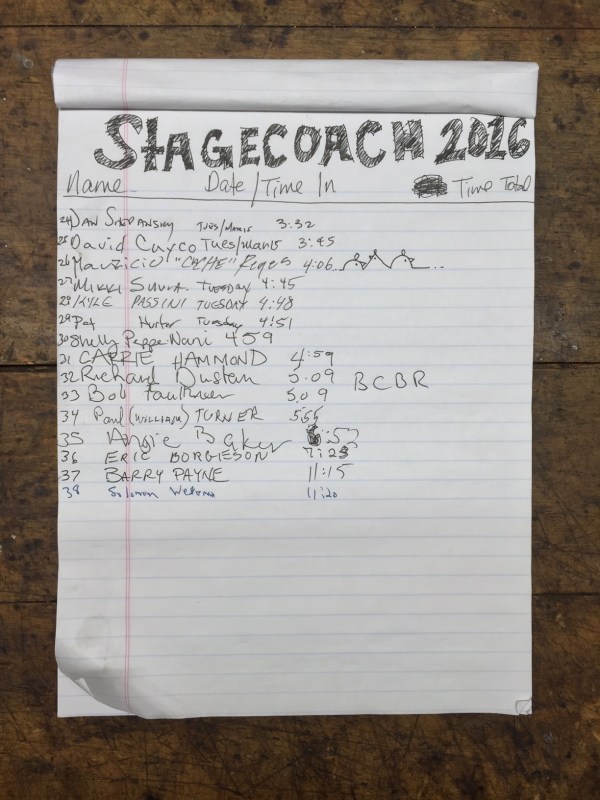 STAGECOACH 2016
Name Date/Time In Time Total
24 DAN Tues/Mar15 3:32
25 David Cuyco Tues/Mar15 3:45
26 Mauricio "CACHE" Reyes 4:06
27 Mikki TUESDAY 4:45
28 KYLE PASSINI TUESDAY 4:48
29 Pat Hunter Tuesday 4:51
30 Shelly 459
31 CARRIE HAMMOND 4:59
32 Richard Dustan 5:09 BCBR
33 Bob Faulkner 5:09
34 Paul (WILLIAM) TURNER 5:55
35 Angie Baker 6:53
36 ERIC BORGIESON 7:23
37 BARRY PAYNE 11:15
38 Solomon 11:20